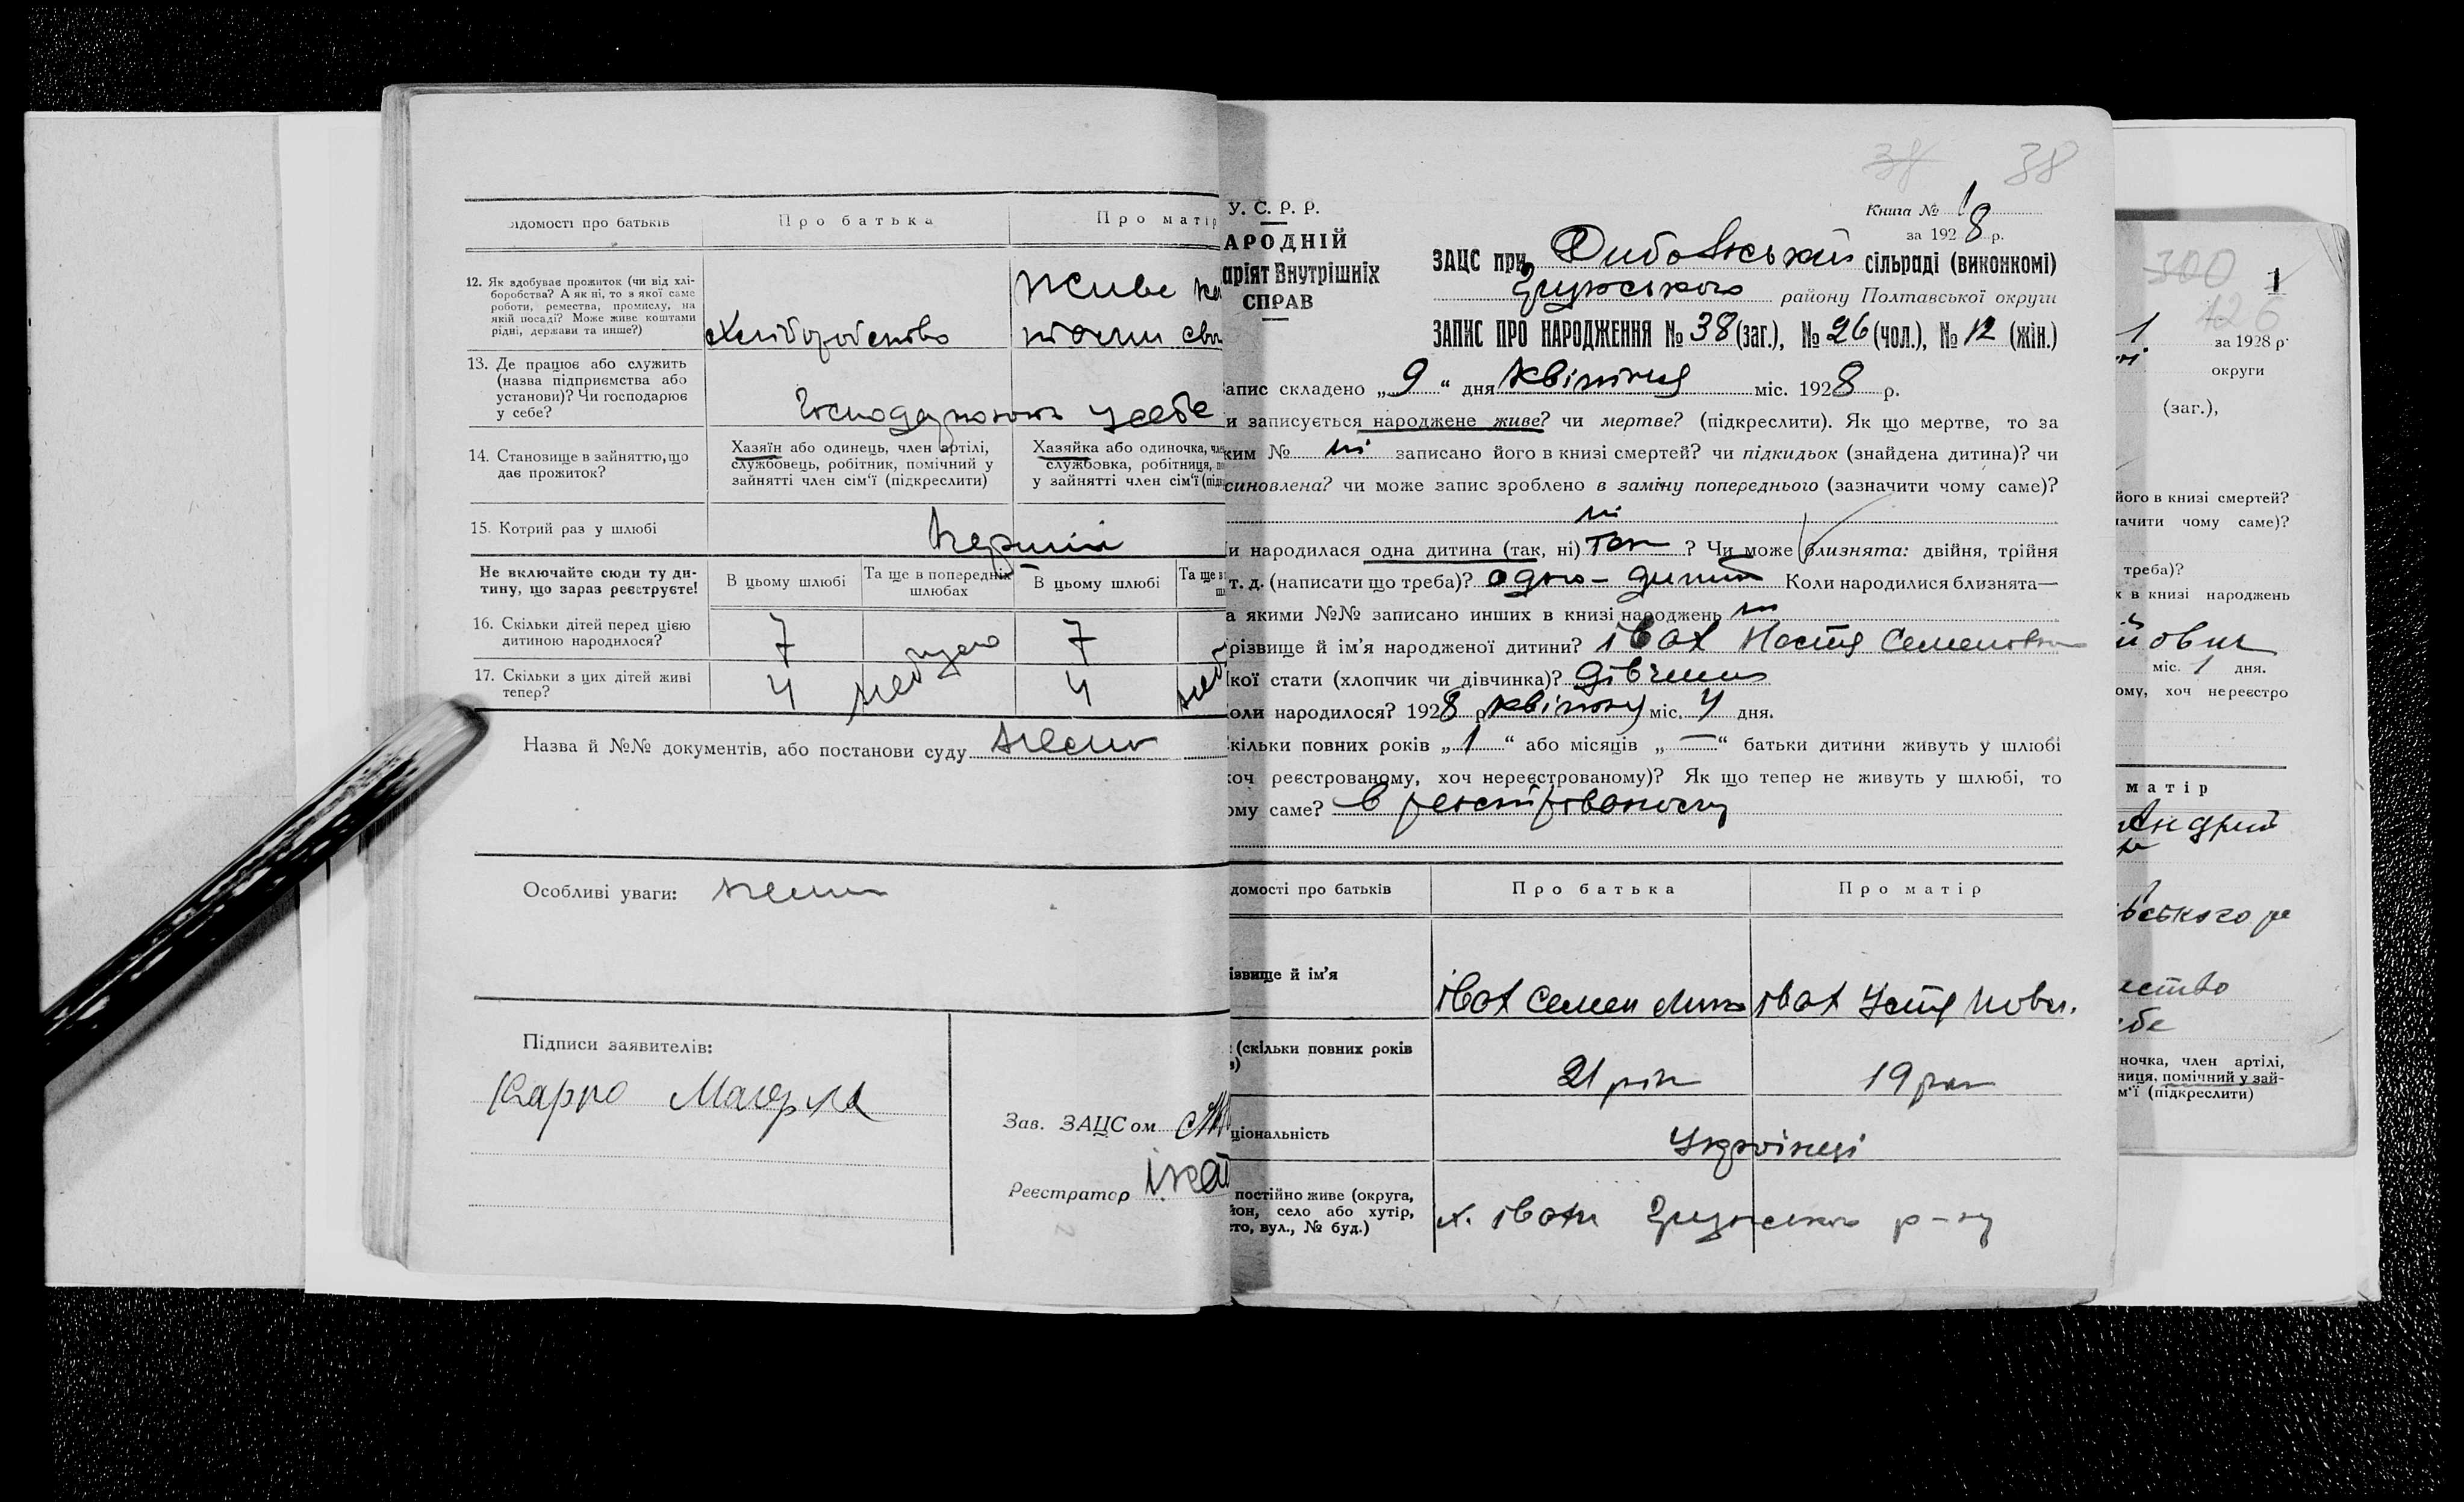 відомості про батьків
Про батька
Про матір
12. Як здобуває прожиток (чи від хлі-
боробства? А як ні, то з якої саме
роботи, ремества, промислу, на
якій посаді? Може живе коштами
рідні, держави та инше?)
Хліборобство
Живе
13. Де працює або служить
(назва підприємства або
установи)? Чи господарює
у себе?
Господарюють у себе
14. Становище в зайняттю, що
дає прожиток?
Хазяїн або одинець, член артілі,
службовець, робітник, помічний у
зайнятті член сім'ї (підкреслити)
Хазяйка або одиночка, чле
службовка, робітниця, по
у зайнятті член сім'ї (підк
15. Котрий раз у шлюбі
Перший
Не включайте сюди ту ди-
тину, що зараз реєструєте!
В цьому шлюбі
Та ще в попередніх
шлюбах
В цьому шлюбі
Та ще в
16. Скільки дітей перед цією
дитиною народилося?
7
7
17. Скільки з цих дітей живі
тепер?
4
не було
4
Назва й №№ документів, або постанови суду нема
Особливі уваги: нема
Підписи заявителів:
Карпо
Зав. ЗАЦСом
Реєстратор
38 38
У. С. Р. Р.
АРОДНІЙ
аріят Внутрішніх
СПРАВ
Книга № 1
за 1928 р.
ЗАЦС при сільраді (виконкомі)
району Полтавської округи
ЗАПИС ПРО НАРОДЖЕННЯ № 38 (заг.), № 26 (чол.), № 12 (жін.)
апис складено „9“ дня квітня міс. 1928 р.
и записується народжене живе? чи мертве? (підкреслити). Як що мертве, то за
ким № ні записано його в книзі смертей? чи підкидьок (знайдена дитина)? чи
синовлена? чи може запис зроблено в заміну попереднього (зазначити чому саме)?
ні
и народилася одна дитина (так, ні) так ? Чи може близнята: двійня, трійня
т. д. (написати що треба)? одно – дитя Коли народилися близнята—
а якими №№ записано инших в книзі народжень ні
різвище й ім'я народженої дитини? Івах Настя Семеновна
кої стати (хлопчик чи дівчинка)? дівчина
оли народилося? 1928 р. квітня міс. 4 дня.
кільки повних років „1“ або місяців „—“ батьки дитини живуть у шлюбі
оч реєстрованому, хоч нереєстрованому)? Як що тепер не живуть у шлюбі, то
ому саме? в реєстрованому
домості про батьків
Про батька
Про матір
ізвище й ім'я
Івах Семен
Івах Устя
(скільки повних років
21 рік
19 рок
ціональність
Українці
постійно живе (округа,
йон, село або хутір,
сто, вул., № буд.)
х. Івахи р-ну
300 1
126
1 за 1928 р.
округи
(заг.),
його в книзі смертей?
начити чому саме)?
треба)?
х в книзі народжень
йович
міс. 1 дня.
ому, хоч нереєстро
матір
ського
себе
ночка, член артілі,
ниця, помічний у зай-
м'ї (підкреслити)